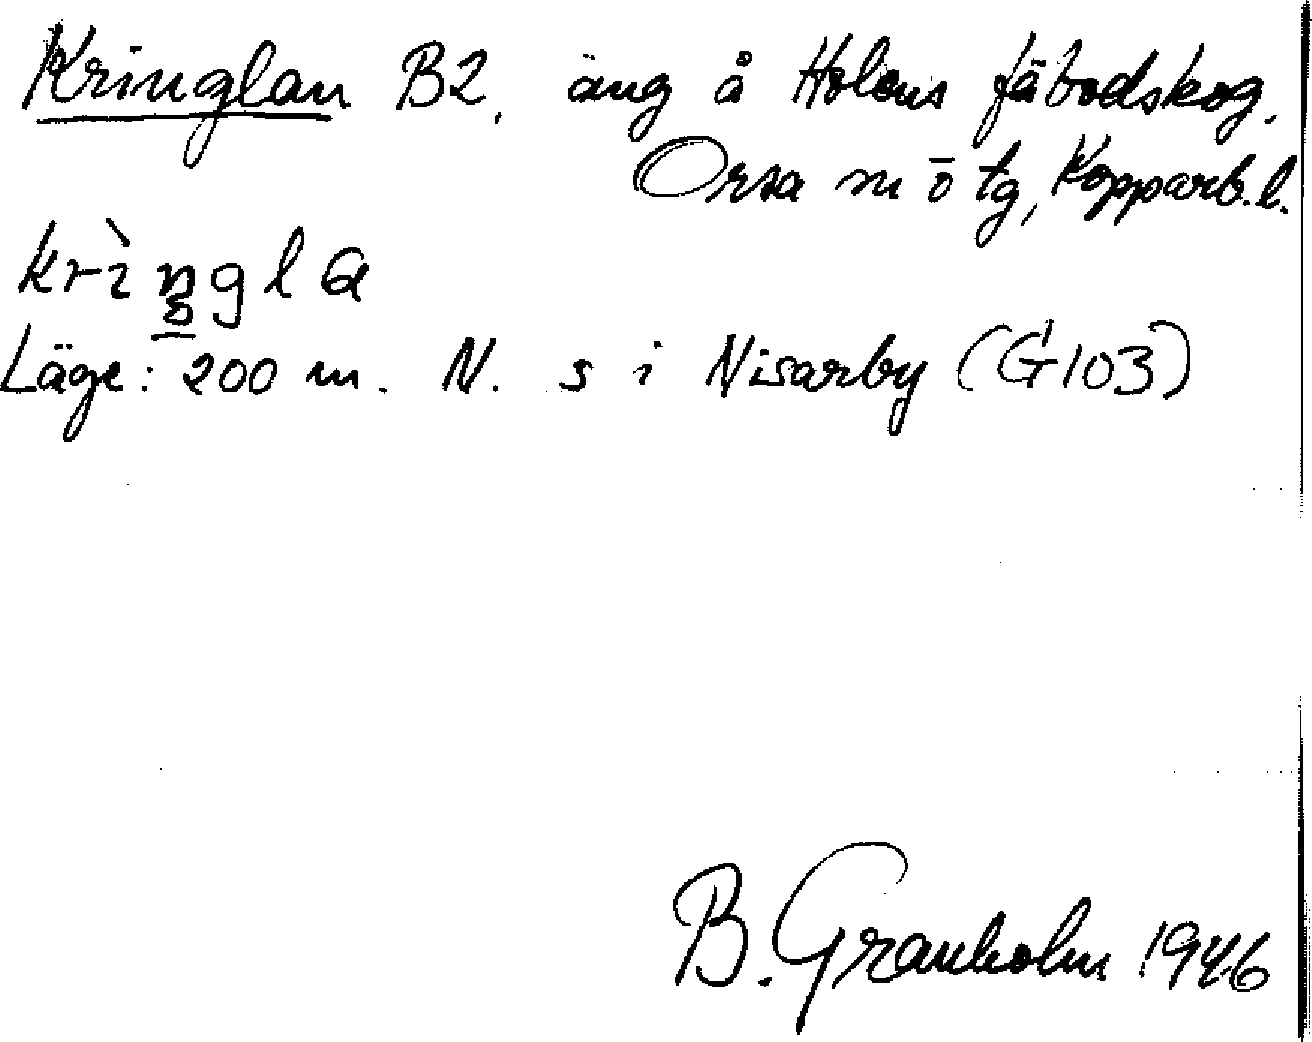 Kringlan B2, äng å Holens fäbodskog.
Orsa m ō tg, Kopparb.l.
Läge: 200 m. N. s i Nisarby (G103)
B. Granholm 1946